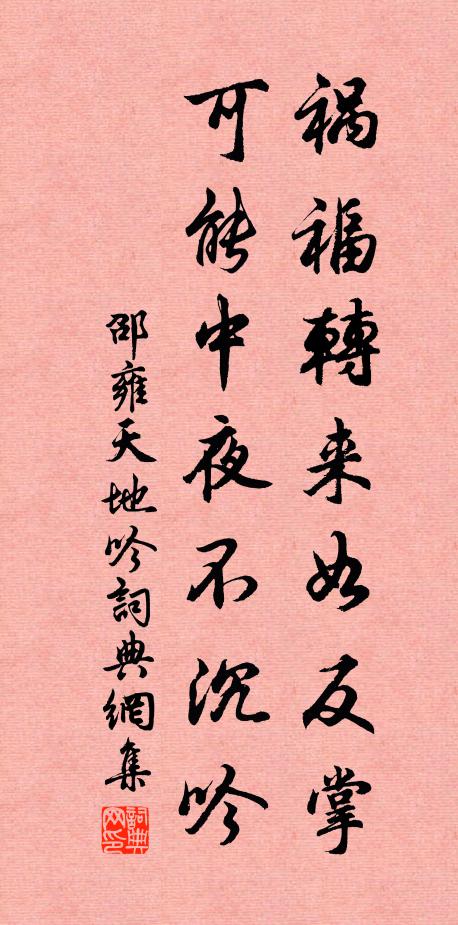 祸福轉来如反掌
可能中夜不沉吟
邵雍天地吟詞典網集
詞典网印